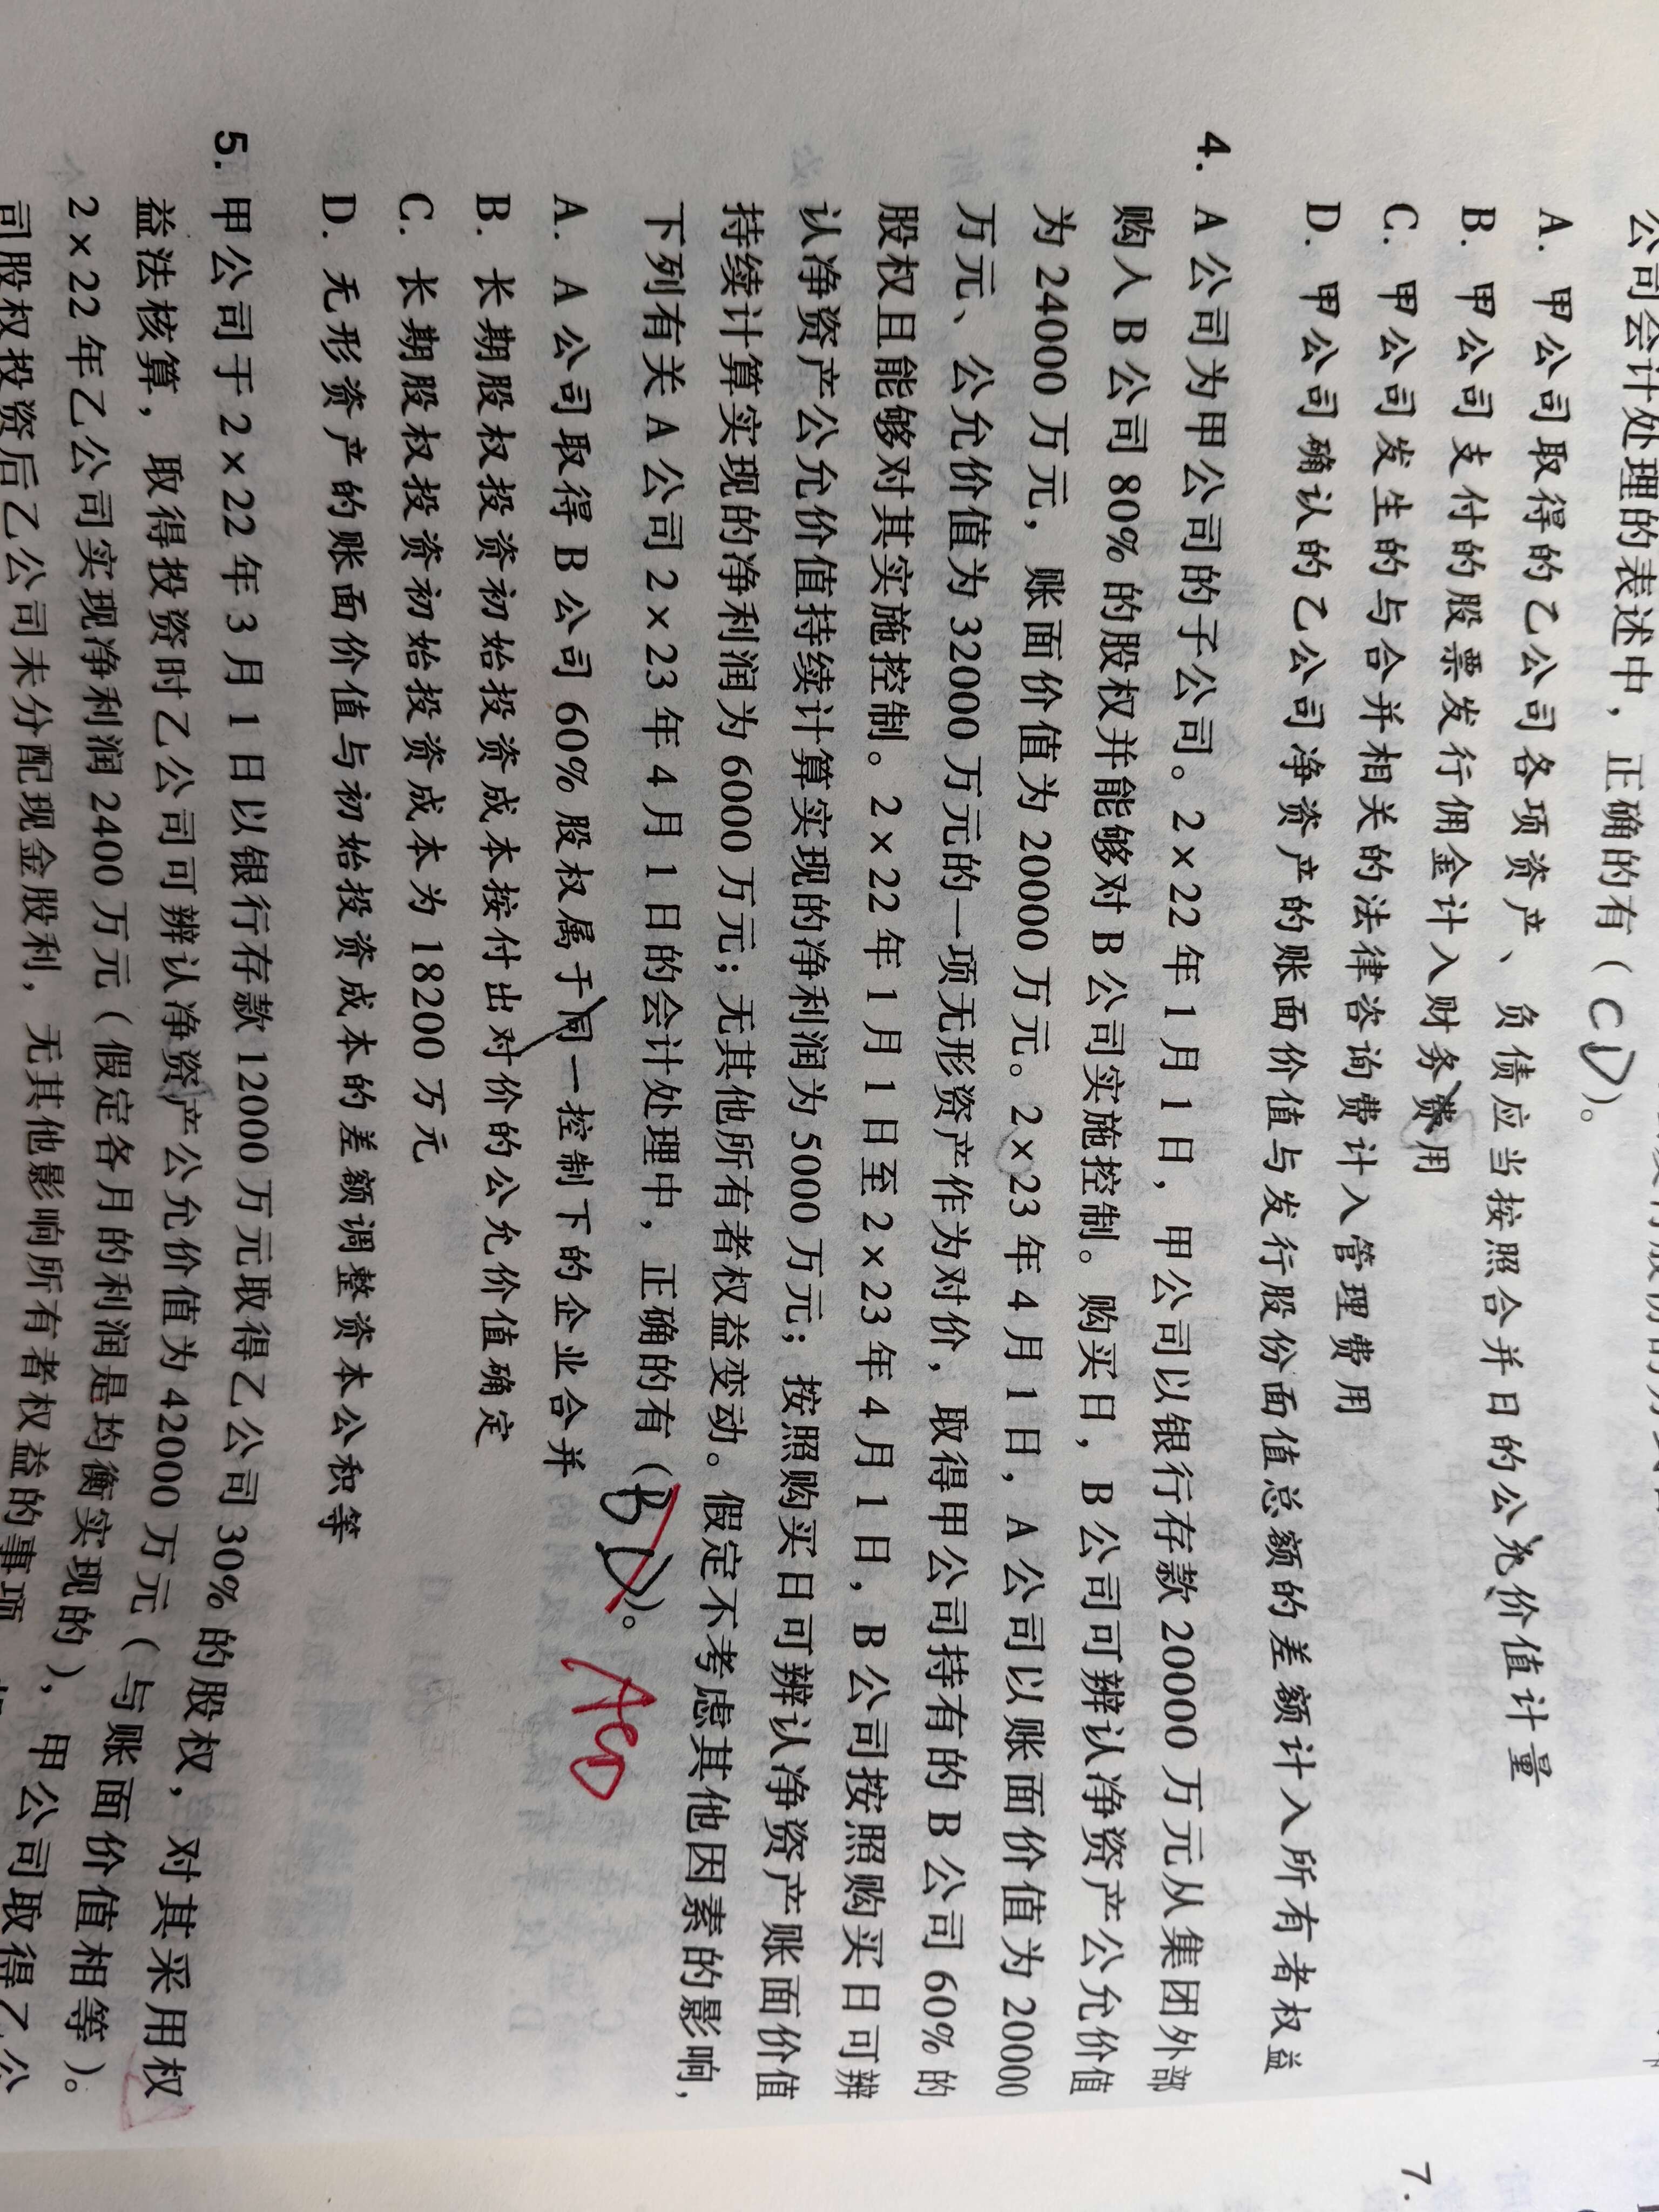 公司会计处理的表述中，正确的有（CD）。
A. 甲公司取得的乙公司各项资产、负债应当按照合并日的公允价值计量
B. 甲公司支付的股票发行佣金计入财务费用
C. 甲公司发生的与合并相关的法律咨询费计入管理费用
D. 甲公司确认的乙公司净资产的账面价值与发行股份面值总额的差额计入所有者权益
4. A 公司为甲公司的子公司。2×22 年 1 月 1 日，甲公司以银行存款 20000 万元从集团外部
购入 B 公司 80% 的股权并能够对 B 公司实施控制。购买日，B 公司可辨认净资产公允价值
为 24000 万元，账面价值为 20000 万元。2×23 年 4 月 1 日，A 公司以账面价值为 20000
万元、公允价值为 32000 万元的一项无形资产作为对价，取得甲公司持有的 B 公司 60% 的
股权且能够对其实施控制。2×22 年 1 月 1 日至 2×23 年 4 月 1 日，B 公司按照购买日可辨
认净资产公允价值持续计算实现的净利润为 5000 万元；按照购买日可辨认净资产账面价值
持续计算实现的净利润为 6000 万元；无其他所有者权益变动。假定不考虑其他因素的影响，
下列有关 A 公司 2×23 年 4 月 1 日的会计处理中，正确的有（BD）。
A. A 公司取得 B 公司 60% 股权属于同一控制下的企业合并
B. 长期股权投资初始投资成本按付出对价的公允价值确定
C. 长期股权投资初始投资成本为 18200 万元
D. 无形资产的账面价值与初始投资成本的差额调整资本公积等
5. 甲公司于 2×22 年 3 月 1 日以银行存款 12000 万元取得乙公司 30% 的股权，对其采用权
益法核算，取得投资时乙公司可辨认净资产公允价值为 42000 万元（与账面价值相等）。
2×22 年乙公司实现净利润 2400 万元（假定各月的利润是均衡实现的），甲公司取得乙公
司股权投资后乙公司未分配现金股利，无其他影响所有者权益的事项
7.